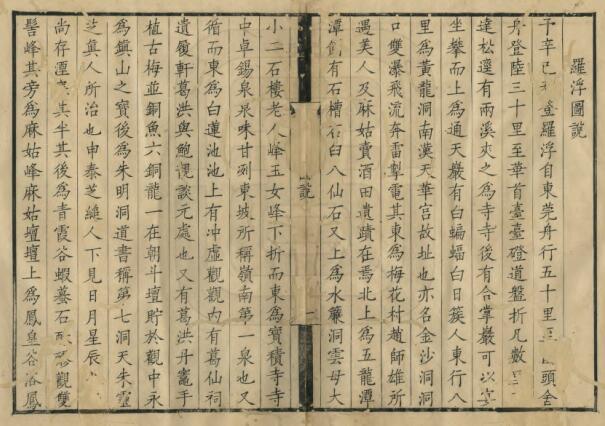 羅浮圖說
予辛巳 登羅浮自東莞舟行五十里 頭舍
舟登陸三十里至華首臺臺磴道盤折凡數
達松邃有兩溪夾之為寺寺後有合掌巖可以宴
坐攀而上為通天巖有白蝙蝠白日簇人東行八
里為黃龍洞南漢天華宮故址也亦名金沙洞洞
口雙瀑飛流奔雷掣電其東為梅花村趙師雄所
遇美人及麻姑賣酒田遺蹟在焉北上為五龍潭
潭側有石槽石臼八仙石又上為水簾洞雲母大
說
一
小二石樓老人峰玉女峰下折而東為寶積寺寺
中卓錫泉泉味甘冽東坡所稱嶺南第一泉也又
循而東為白蓮池池上有沖虛觀觀內有葛仙祠
遺履軒葛洪與鮑靚談元處也又有葛洪丹竈手
植古梅並銅魚六銅龍一在朝斗壇貯於觀中永
為鎮山之寶後為朱明洞道書稱第七洞天朱靈
芝真人所治也申泰芝縋人下見日月星辰
尚存湮 其半其後為青霞谷蝦蟇石 觀雙
髻峰其旁為麻姑峰麻姑壇壇上為鳳皇谷浴鳳